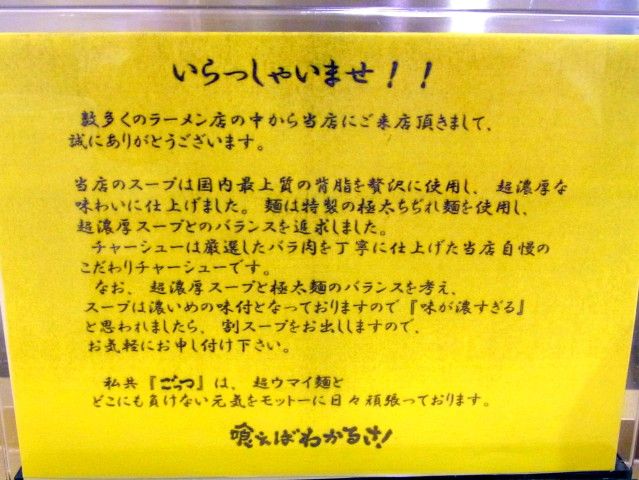 いらっしゃいませ！！
数多くのラーメン店の中から当店にご来店頂きまして、
誠にありがとうございます。
当店のスープは国内最上質の背脂を贅沢に使用し、超濃厚な
味わいに仕上げました。麺は特製の極太ちぢれ麺を使用し、
超濃厚スープとのバランスを追求しました。
チャーシューは厳選したバラ肉を丁寧に仕上げた当店自慢の
こだわりチャーシューです。
なお、超濃厚スープと極太麺のバランスを考え、
スープは濃いめの味付となっておりますので『味が濃すぎる』
と思われましたら、割スープをお出ししますので、
お気軽にお申し付け下さい。
私共『ごっつ』は、超ウマイ麺と
どこにも負けない元気をモットーに日々頑張っております。
喰えばわかるさ!